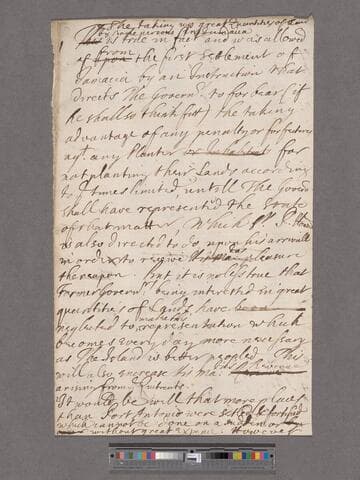 The taking up great Quantities of Land
by single persons in Jamaica
is true in fact and was allowed
of from the first settlement of
Jamaica by an Instruction that
directs the Govern.r to forbear (if
he shall so think fitt) the taking
advantage of any penalty or forfeiture
ag.t any Planter or Inhabitant for
not planting their Lands according
to y.e times limited, untill The Govern.r
shall have represented the State
of that matter, Which
is also directed to do upon his arrivall
in order to receive his pleasure
thereupon. But it is no less true that
Former Govern.rs being interested in great
quantities of Land have
neglected to make that representation which
becomes every day more necessary
as The Island is better peopled. This
will also increase his Ma.tys Revenue
arising from Quitrents.
It would be well that more places
than Port Antonio were settled & fortified
which cannot be done on a sudden or
without great expence. However